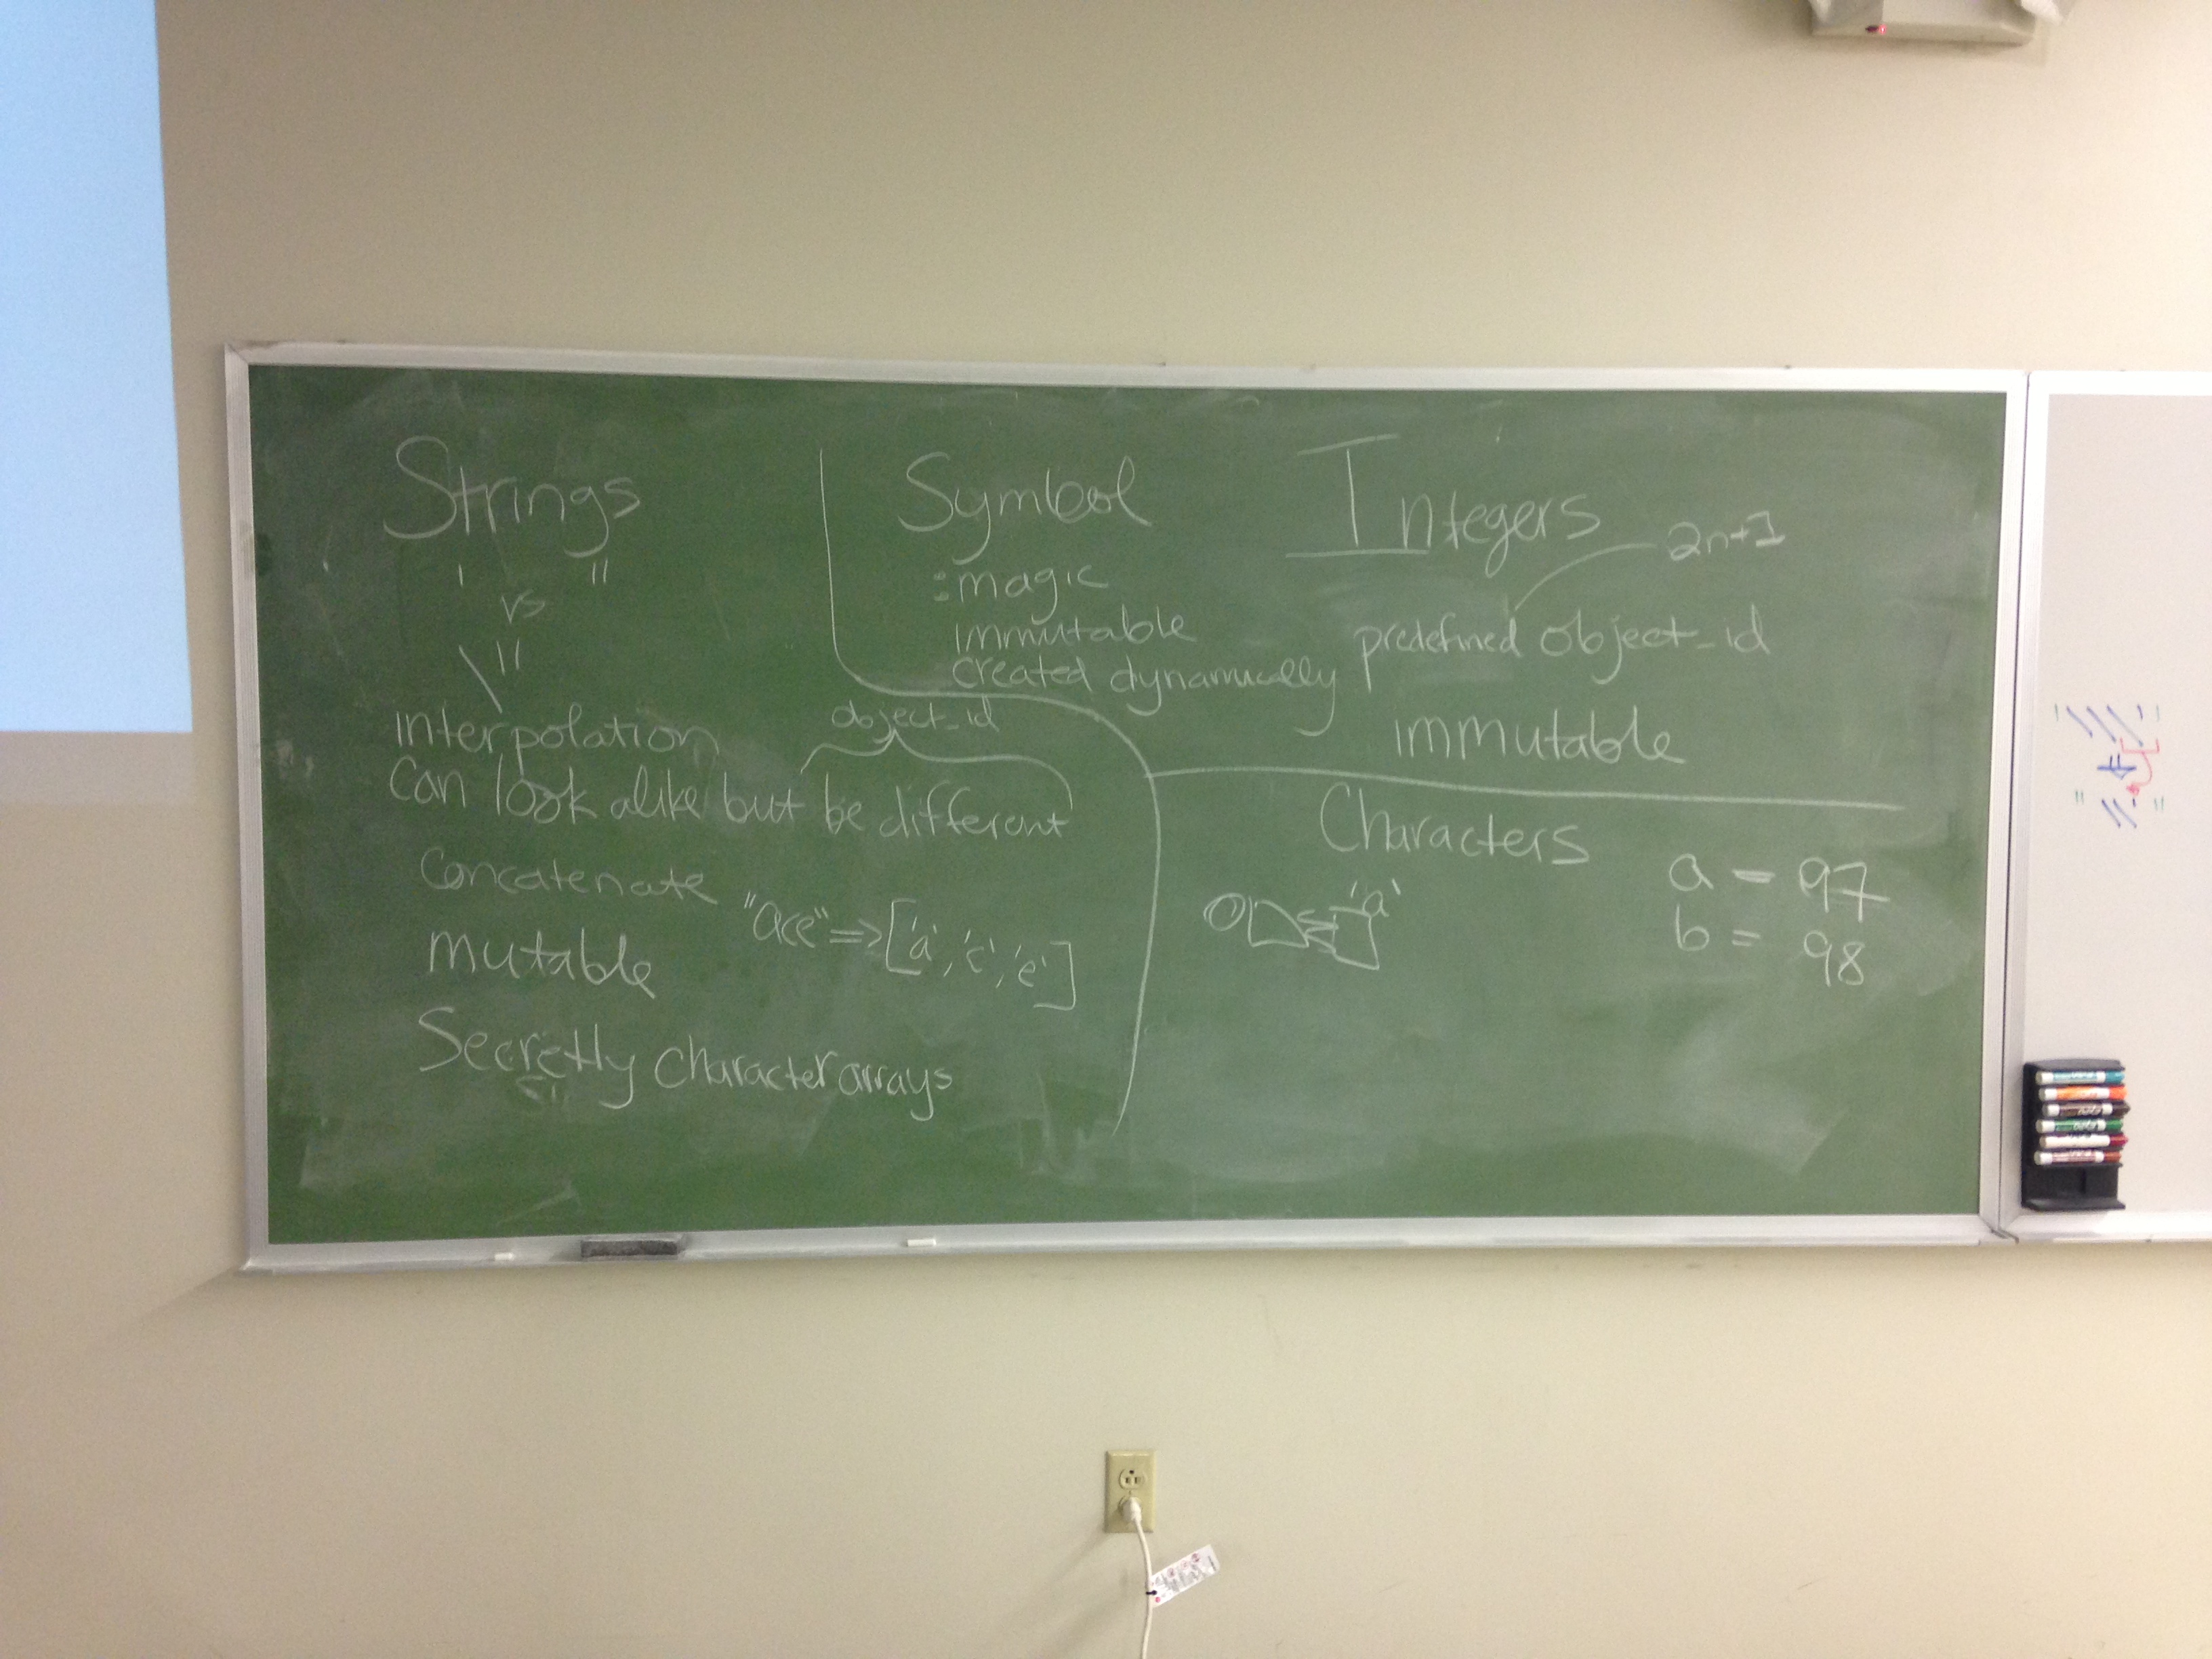 Strings
' vs "
\ "
interpolation
object_id
can look alike but be different
concatenate
"ace" => ['a', 'c', 'e']
mutable
Secretly character arrays
Symbol
:magic
immutable
created dynamically
Integers
2n+1
predefined object_id
immutable
Characters
'a'
a = 97
b = 98